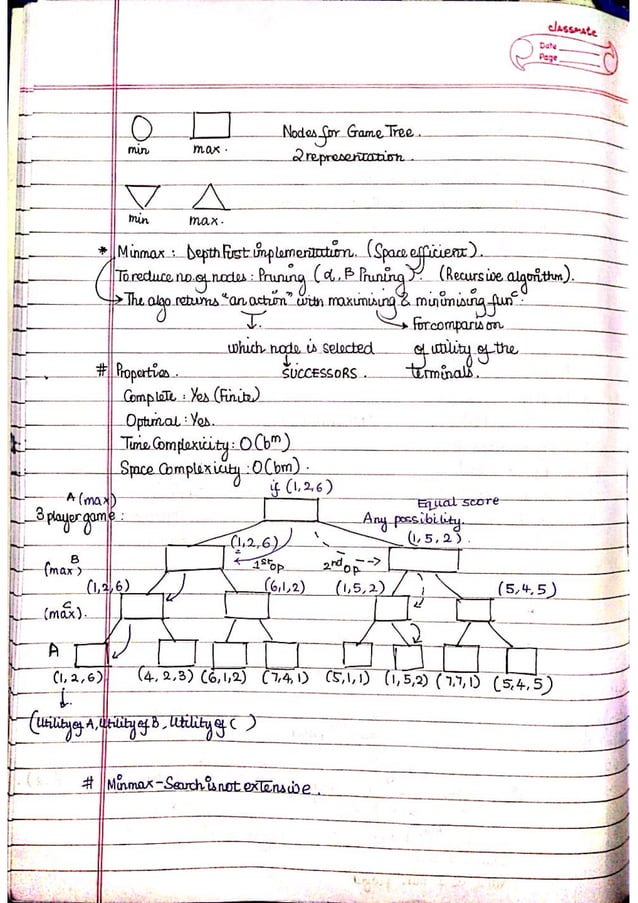 classmate
Date
Page
Nodes for Game Tree.
min max.
2 representation.
min max.
* Minmax : Depth First implementation. (Space efficient).
To reduce no. of nodes : Pruning (α, β Pruning). (Recursive algorithm).
→ The algo returns "an action" with maximising & minimising funᶜ.
→ For comparison
which node is selected of utility of the
# Properties. SUCCESSORS. terminals.
Complete : Yes (Finite)
Optimal : Yes.
Time Complexicity : O(bᵐ)
Space Complexicity : O(bm).
if (1,2,6)
A (max) Equal score
3 player game : Any possibility.
(1,2,6) (1,5,2)
B 1st op 2nd op
(max)
(1,2,6) (6,1,2) (1,5,2) (5,4,5)
C
(max).
A
(1,2,6) (4,2,3) (6,1,2) (7,4,1) (5,1,1) (1,5,2) (7,7,1) (5,4,5)
(Utility of A, Utility of B, Utility of C )
# Minmax - Search is not extensive.